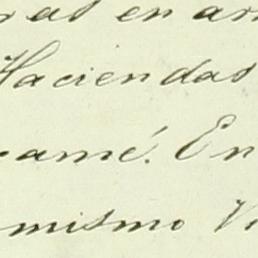 ras en ar
Haciendas
camé. En
mismo V